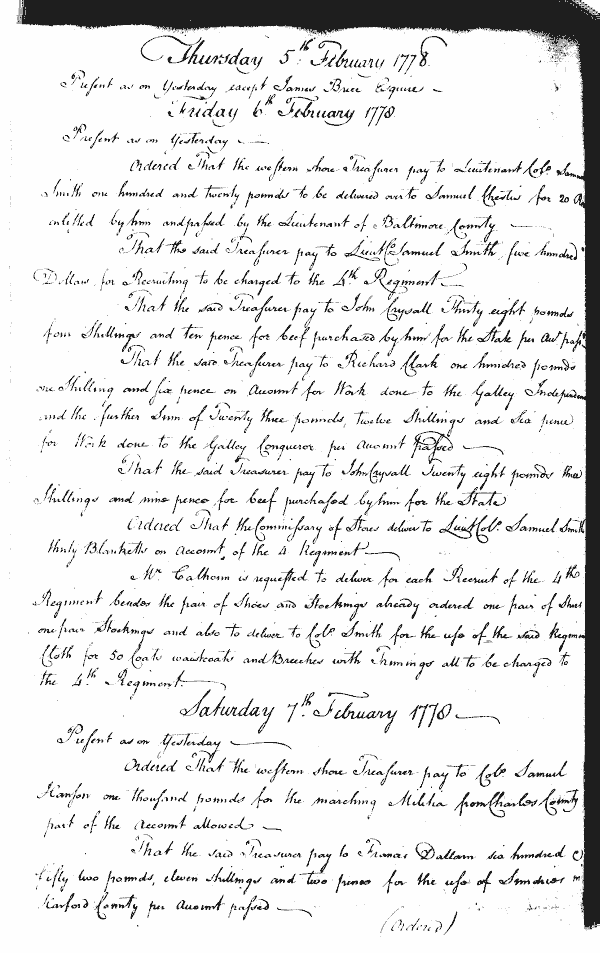 Thursday 5th February 1778.
Present as on Yesterday except James Brice Esquire –
Friday 6th February 1778
Present as on Yesterday —
Ordered That the western shore Treasurer pay to Lieutenant Colo. Samuel
Smith one hundred and twenty pounds to be delivered over to Samuel Chester for 20
enlisted by him and passed by the Lieutenant of Baltimore County —
That the said Treasurer pay to Lieut Co. Samuel Smith five hundred
Dollars for Recruiting to be charged to the 4th Regiment —
That the said Treasurer pay to John Crysall Thirty eight pounds
four Shillings and ten pence for beef purchased by him for the State per Acct passd.
That the said Treasurer pay to Richard Mark one hundred pounds
one Shilling and six pence on Account for Work done to the Galley Independence
and the further Sum of Twenty three pounds, twelve Shillings and Six pence
for Work done to the Galley Conqueror per Account passed —
That the said Treasurer pay to John Crysall Twenty eight pounds three
Shillings and nine pence for beef purchased by him for the State
Ordered That the Commissary of Stores deliver to Lieut Colo. Samuel Smith
thirty Blanketts on Account of the 4 Regiment —
Mr. Calhoun is requested to deliver for each Recruit of the 4th
Regiment besides the pair of Shoes and Stockings already ordered one pair of Shoes
one pair Stockings and also to deliver to Colo. Smith for the use of the said Regiment
Cloth for 50 Coats waistcoats and Breeches with Trimings all to be charged to
the 4th Regiment —
Saturday 7th February 1778 —
Present as on Yesterday —
Ordered That the western shore Treasurer pay to Colo. Samuel
Hanson one thousand pounds for the marching Militia from Charles County
part of the account allowed —
That the said Treasurer pay to Francis Dallam six hundred &
fifty two pounds, eleven shillings and two pence for the use of Sundries in
Harford County per Account passed —
(Ordered)